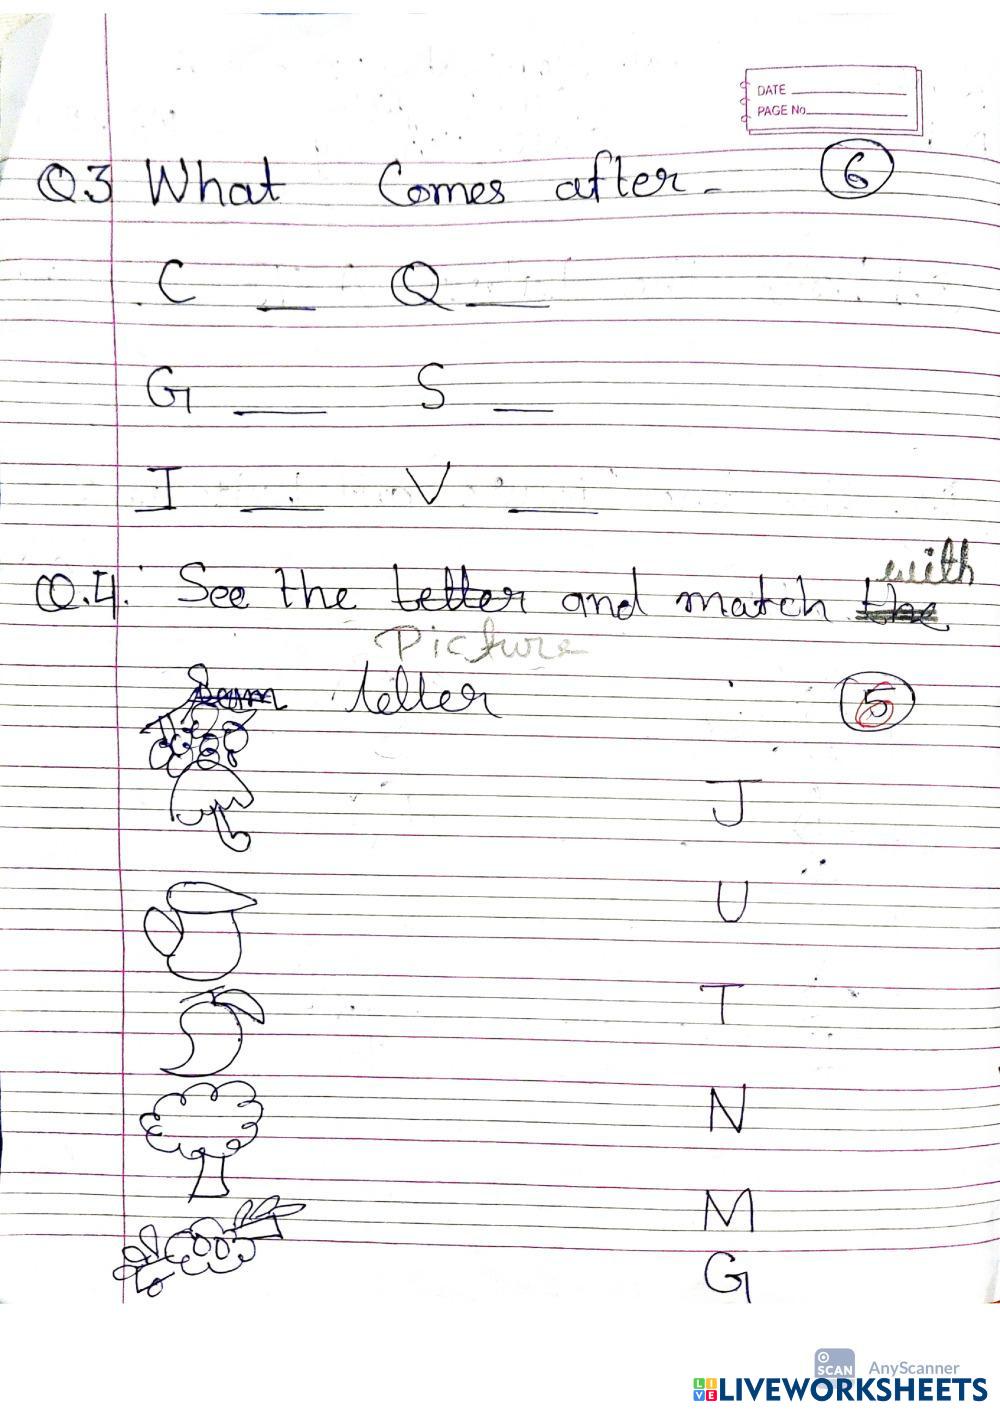 DATE
PAGE No.
Q.3 What Comes after - 6
C __ Q __
G __ S __
I __ V __
Q.4. See the letter and match with
Picture
letter 5
J
U
T
N
M
G
SCAN AnyScanner
LIVE LIVEWORKSHEETS